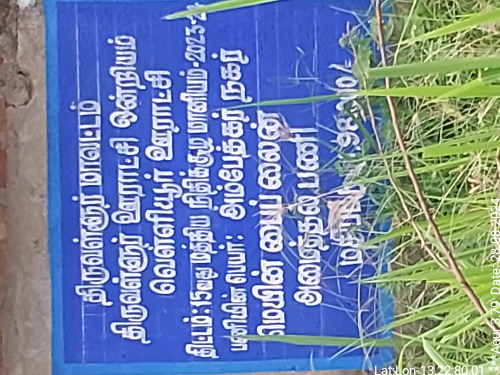 திருவள்ளூர் மாவட்டம்
திருவள்ளூர் ஊராட்சி ஒன்றியம்
வெள்ளியூர் ஊராட்சி
திட்டம்:15வது மத்திய நிதிக்குழு மானியம்-2023-24
பணியின் பெயர்: அம்பேத்கர் நகர்
மெயின் பைப் லைன்
அமைத்தல் பணி
Lat:Lon 13.22.80.01